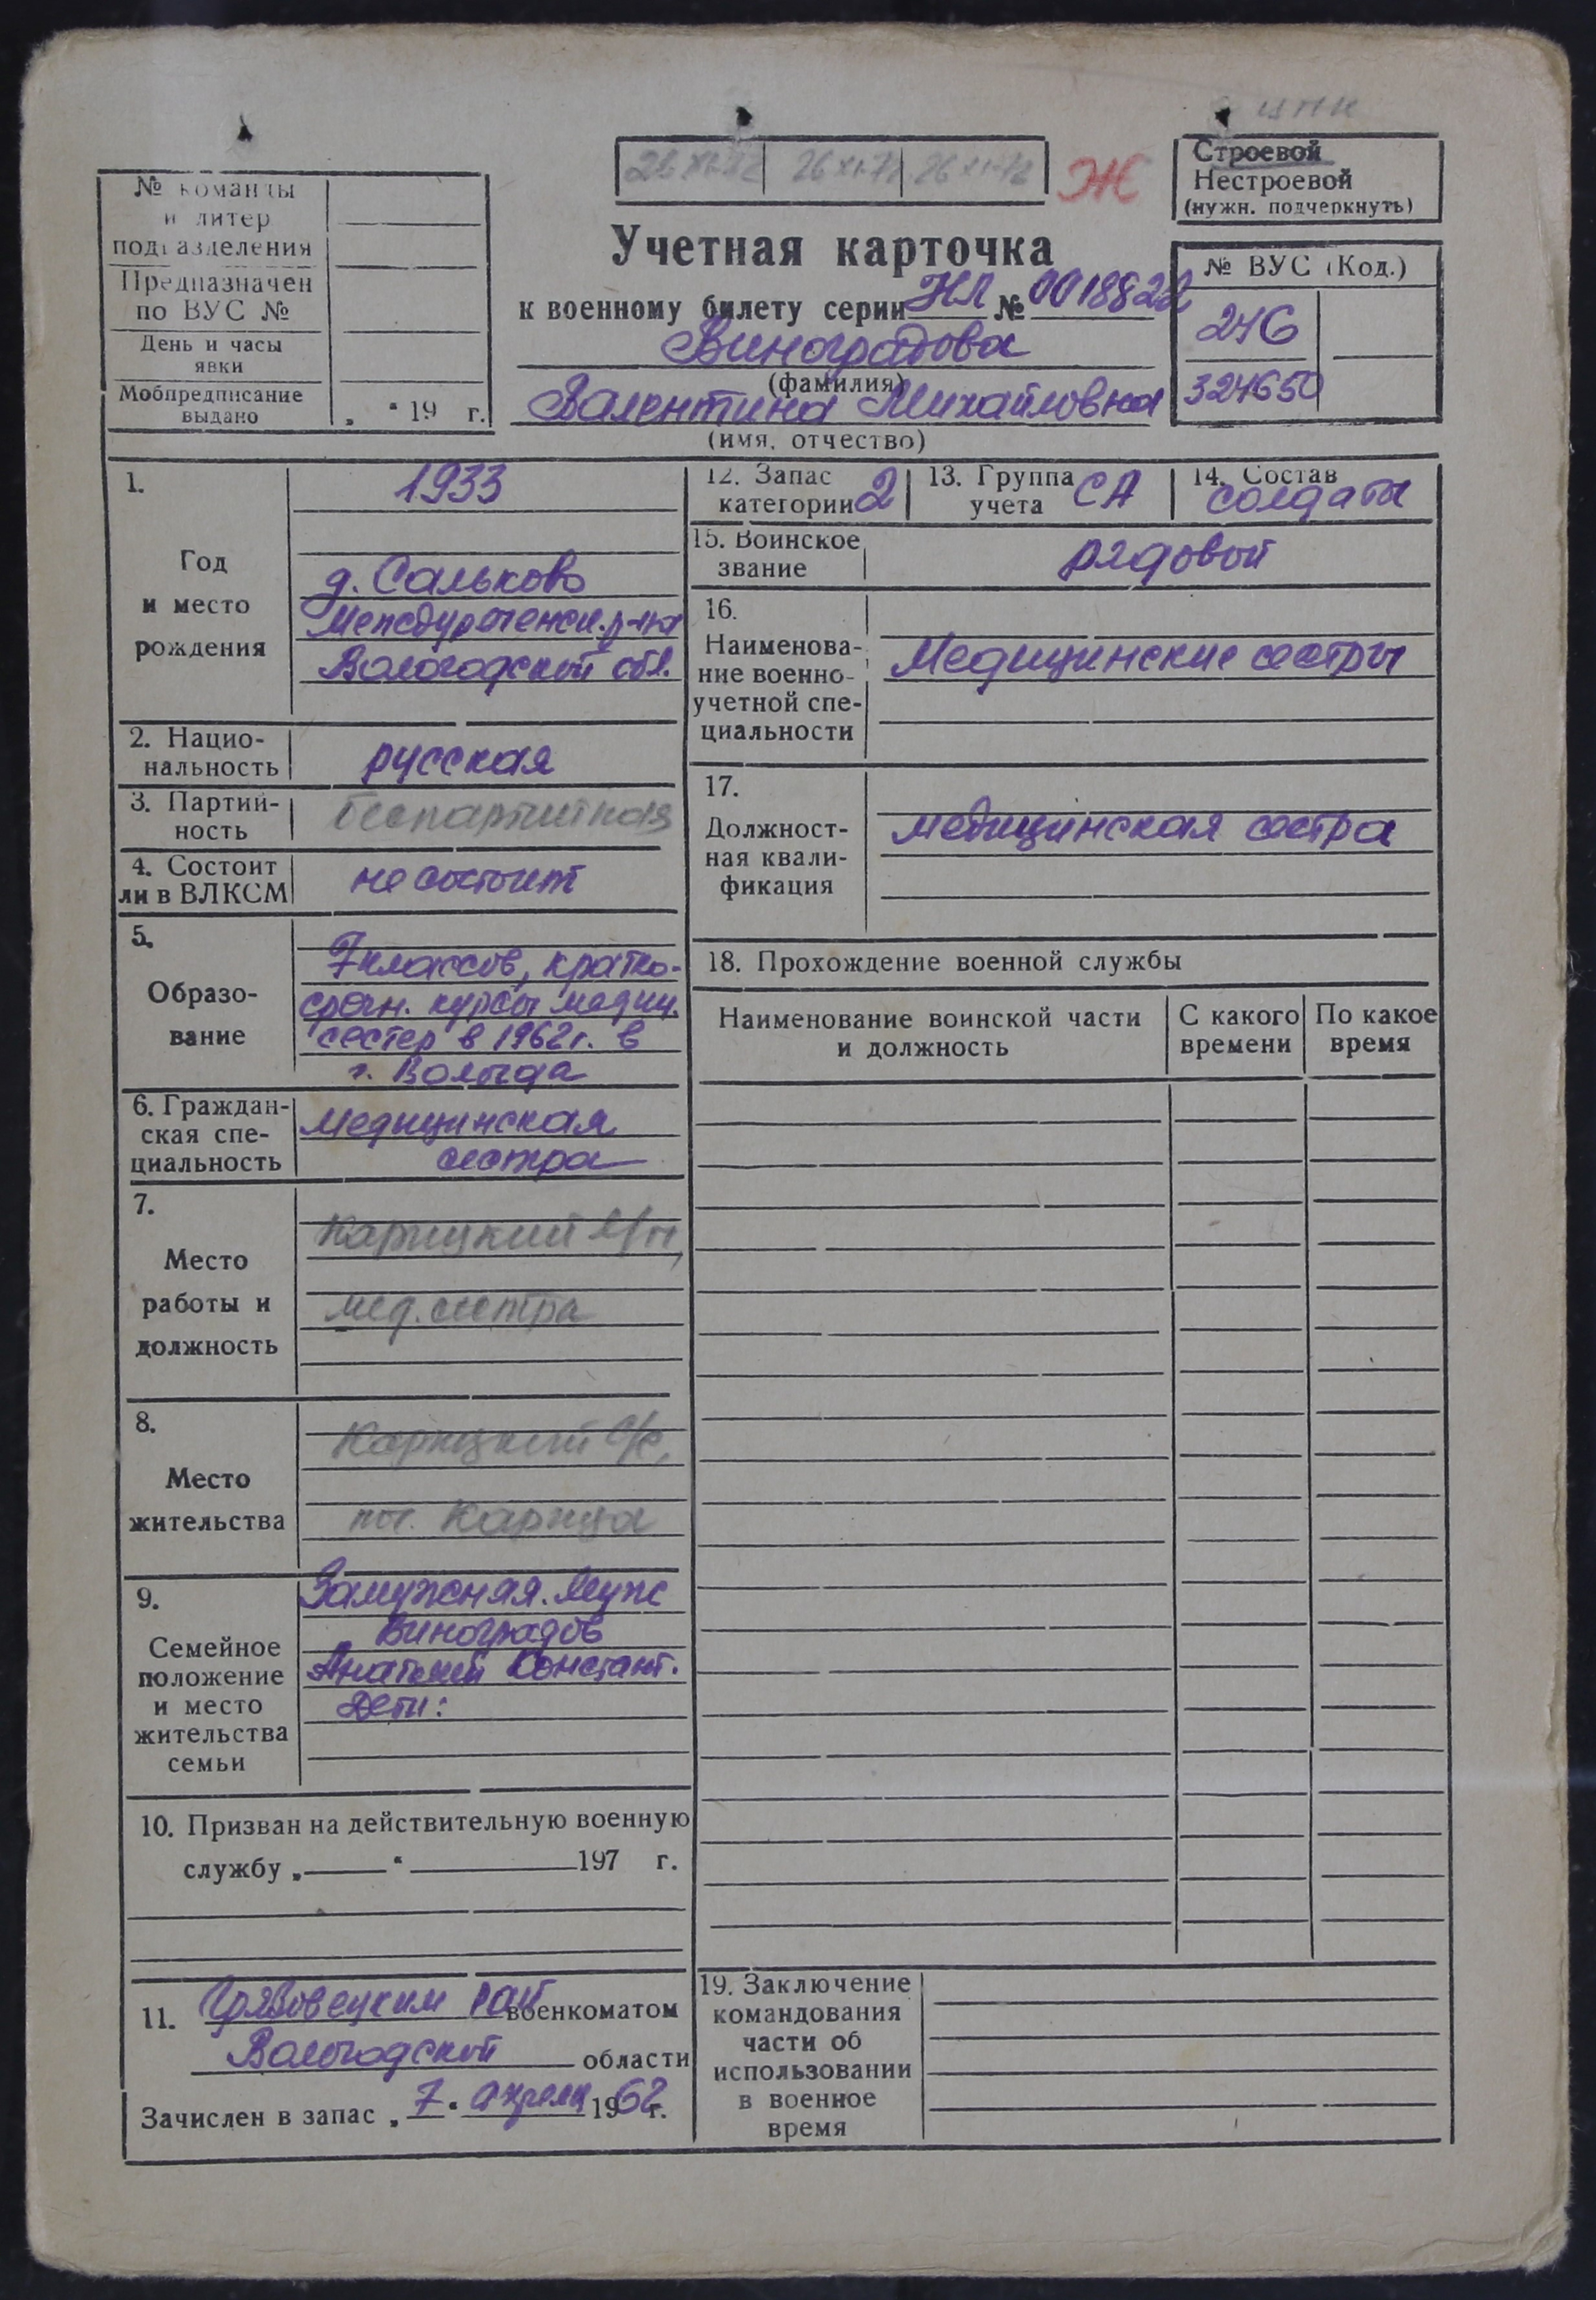 26 XI-72 26 XI-72 26 XI-72
Ж
Строевой
Нестроевой
(нужн. подчеркнуть)
№ команды
и литер
подразделения
Предназначен
по ВУС №
День и часы
явки
Мобпредписание
выдано „ “ 19 г.
Учетная карточка
к военному билету серии НЛ № 0018822
Виноградова
(фамилия)
Валентина Михайловна
(имя, отчество)
№ ВУС (Код.)
246
324650
1.
Год
и место
рождения
1933
д. Сальково
Междуреченск. р-на
Вологодской обл.
2. Нацио-
нальность
русская
3. Партий-
ность
беспартийная
4. Состоит
ли в ВЛКСМ
не состоит
5.
Образо-
вание
7 классов, кратко-
срочн. курсы медиц.
сестер в 1962 г. в
г. Вологда
6. Граждан-
ская спе-
циальность
Медицинская
сестра
7.
Место
работы и
должность
Карицкий
мед. сестра
8.
Место
жительства
Карицкий с/с,
пос. Карица
9.
Семейное
положение
и место
жительства
семьи
Замужняя. Муж
Виноградов
Анатолий Констант.
Дети:
10. Призван на действительную военную
службу „ “ 197 г.
11. Грязовецким рай военкоматом
Вологодской области
Зачислен в запас „ 7 “ апреля 1962 г.
12. Запас
категории 2
13. Группа
учета СА
14. Состав
солдаты
15. Воинское
звание
рядовой
16.
Наименова-
ние военно-
учетной спе-
циальности
Медицинские сестры
17.
Должност-
ная квали-
фикация
медицинская сестра
18. Прохождение военной службы
Наименование воинской части
и должность
С какого
времени
По какое
время
19. Заключение
командования
части об
использовании
в военное
время